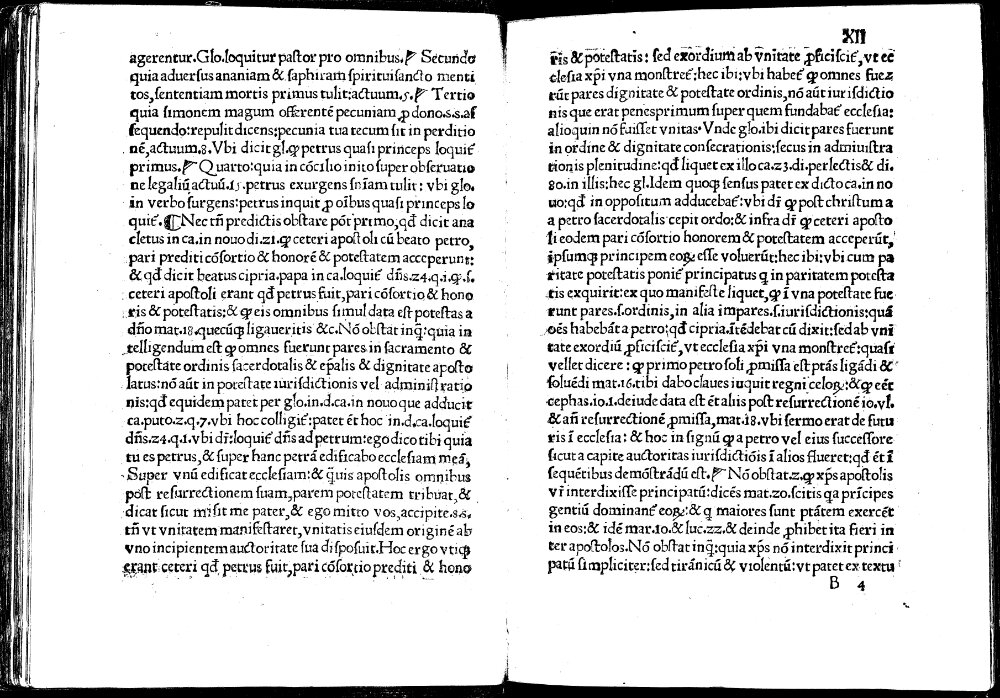 agerentur.Glo.loquitur pastor pro omnibus. Secundo
quia aduersus ananiam & saphiram spirituisancto menti
tos,sententiam mortis primus tulit:actuum.5. Tertio
quia simonem magum offerentē pecuniam ꝓ dono.s.s.as
sequendo:repulit dicens:pecunia tua tecum sit in perditio
nē,actuum.8.Vbi dicit gl.ꝙ petrus quasi princeps loquiť
primus. Quarto:quia in cōcilio inito super obseruatio
ne legaliū actuū.15.petrus exurgens sniam tulit: vbi glo.
in verbo surgens:petrus inquit ꝓ oībus quasi princeps lo
quiť. ¶ Nec tn̄ predictis obstare pōt primo,qđ dicit ana
cletus in ca.in nouo di.21.ꝙ ceteri apostoli cū beato petro,
pari prediti cōsortio & honorē & potestatem acceperunt:
& qđ dicit beatus cipria.papa in ca.loquiť dn̄s.24.q.1.ꝙ.s.
ceteri apostoli erant qđ petrus fuit,pari cōsortio & hono
ris & potestatis:& ꝙ eis omnibus simul data est potestas a
dn̄o mat.18.quecūꝗ ligaueritis &c.Nō obstat inꝗ:quia in
telligendum est ꝙ omnes fuerunt pares in sacramento &
potestate ordinis sacerdotalis & ep̄alis & dignitate aposto
latus:nō aūt in potestate iurisdictionis vel administratio
nis:qđ equidem patet per glo.in.d.ca.in nouo que adducit
ca.puto.2.q.7.vbi hoc colligiť:patet ēt hoc in.d.ca.loquiť
dn̄s.24.q.1.vbi dr̄:loquiť dn̄s ad petrum:ego dico tibi quia
tu es petrus,& super hanc petrā edificabo ecclesiam meā,
Super vnū edificat ecclesiam:& q̄uis apostolis omnibus
post resurrectionem suam,parem potestatem tribuat,&
dicat sicut misit me pater,& ego mitto vos,accipite.s.s.
tn̄ vt vnitatem manifestaret,vnitatis eiusdem originē ab
vno incipientem auctoritate sua disposuit.Hoc ergo vtiꝗ
erant ceteri qđ petrus fuit,pari cōsortio prediti & hono
XII
ris & potestatis: sed exordium ab vnitate ꝓficisciť,vt ec
clesia xp̄i vna monstreť:hec ibi:vbi habeť ꝙ omnes fue
rūt pares dignitate & potestate ordinis,nō aūt iurisdictio
nis que erat penesprimum super quem fundabať ecclesia:
alioquin nō fuisset vnitas.Vnde glo.ibi dicit pares fuerunt
in ordine & dignitate consecrationis:secus in admiuistra
tionis plenitudine:qđ liquet ex illo ca.23.di.perlectis& di.
80.in illis:hec gl.Idem quoꝗ sensus patet ex dicto ca.in no
uo:qđ in oppositum adducebať:vbi dr̄ ꝙ post christum a
a petro sacerdotalis cepit ordo:& infra dr̄ ꝙ ceteri aposto
li eodem pari cōsortio honorem & potestatem acceperūt,
ipsumꝗ principem eoꝝ esse voluerūt:hec ibi:vbi cum pa
ritate potestatis poniť principatus q in paritatem potesta
tis exquirit:ex quo manifeste liquet,ꝙ ī vna potestate fue
runt pares.s.ordinis,in alia impares.s.iurisdictionis:quā
oēs habebāt a petro:qđ cipria.ītēdebat cū dixit:sed ab vni
tate exordiū ꝓficisciť,vt ecclesia xp̄i vna monstreť:quasi
vellet dicere : ꝙ primo petro soli ꝓmissa est ptās ligādi &
soluēdi mat.16.tibi dabo claues iuquit regni celoꝝ:&ꝙ eēt
cephas.io.1.deiude data est ēt aliis post resurrectionē io.vl.
& an̄ resurrectionē ꝓmissa,mat.18.vbi sermo erat de futu
ris ī ecclesia: & hoc in signū ꝙ a petro vel eius successore
sicut a capite auctoritas iurisdictiōis ī alios flueret:qđ ēt ī
sequētibus demōstrādū est. Nō obstat.2.ꝙ xp̄s apostolis
vr̄ interdixisse principatū:dicēs mat.20.scitis qa prīcipes
gentiū dominanť eoꝝ:& q maiores sunt ptātem exercēt
in eos:& idē mar.10.& luc.22.& deinde ꝓhibet ita fieri in
ter apostolos.Nō obstat inꝗ:quia xp̄s nō interdixit princi
patū simpliciter:sed tirānicū & violentū:vt patet ex textu
B 4